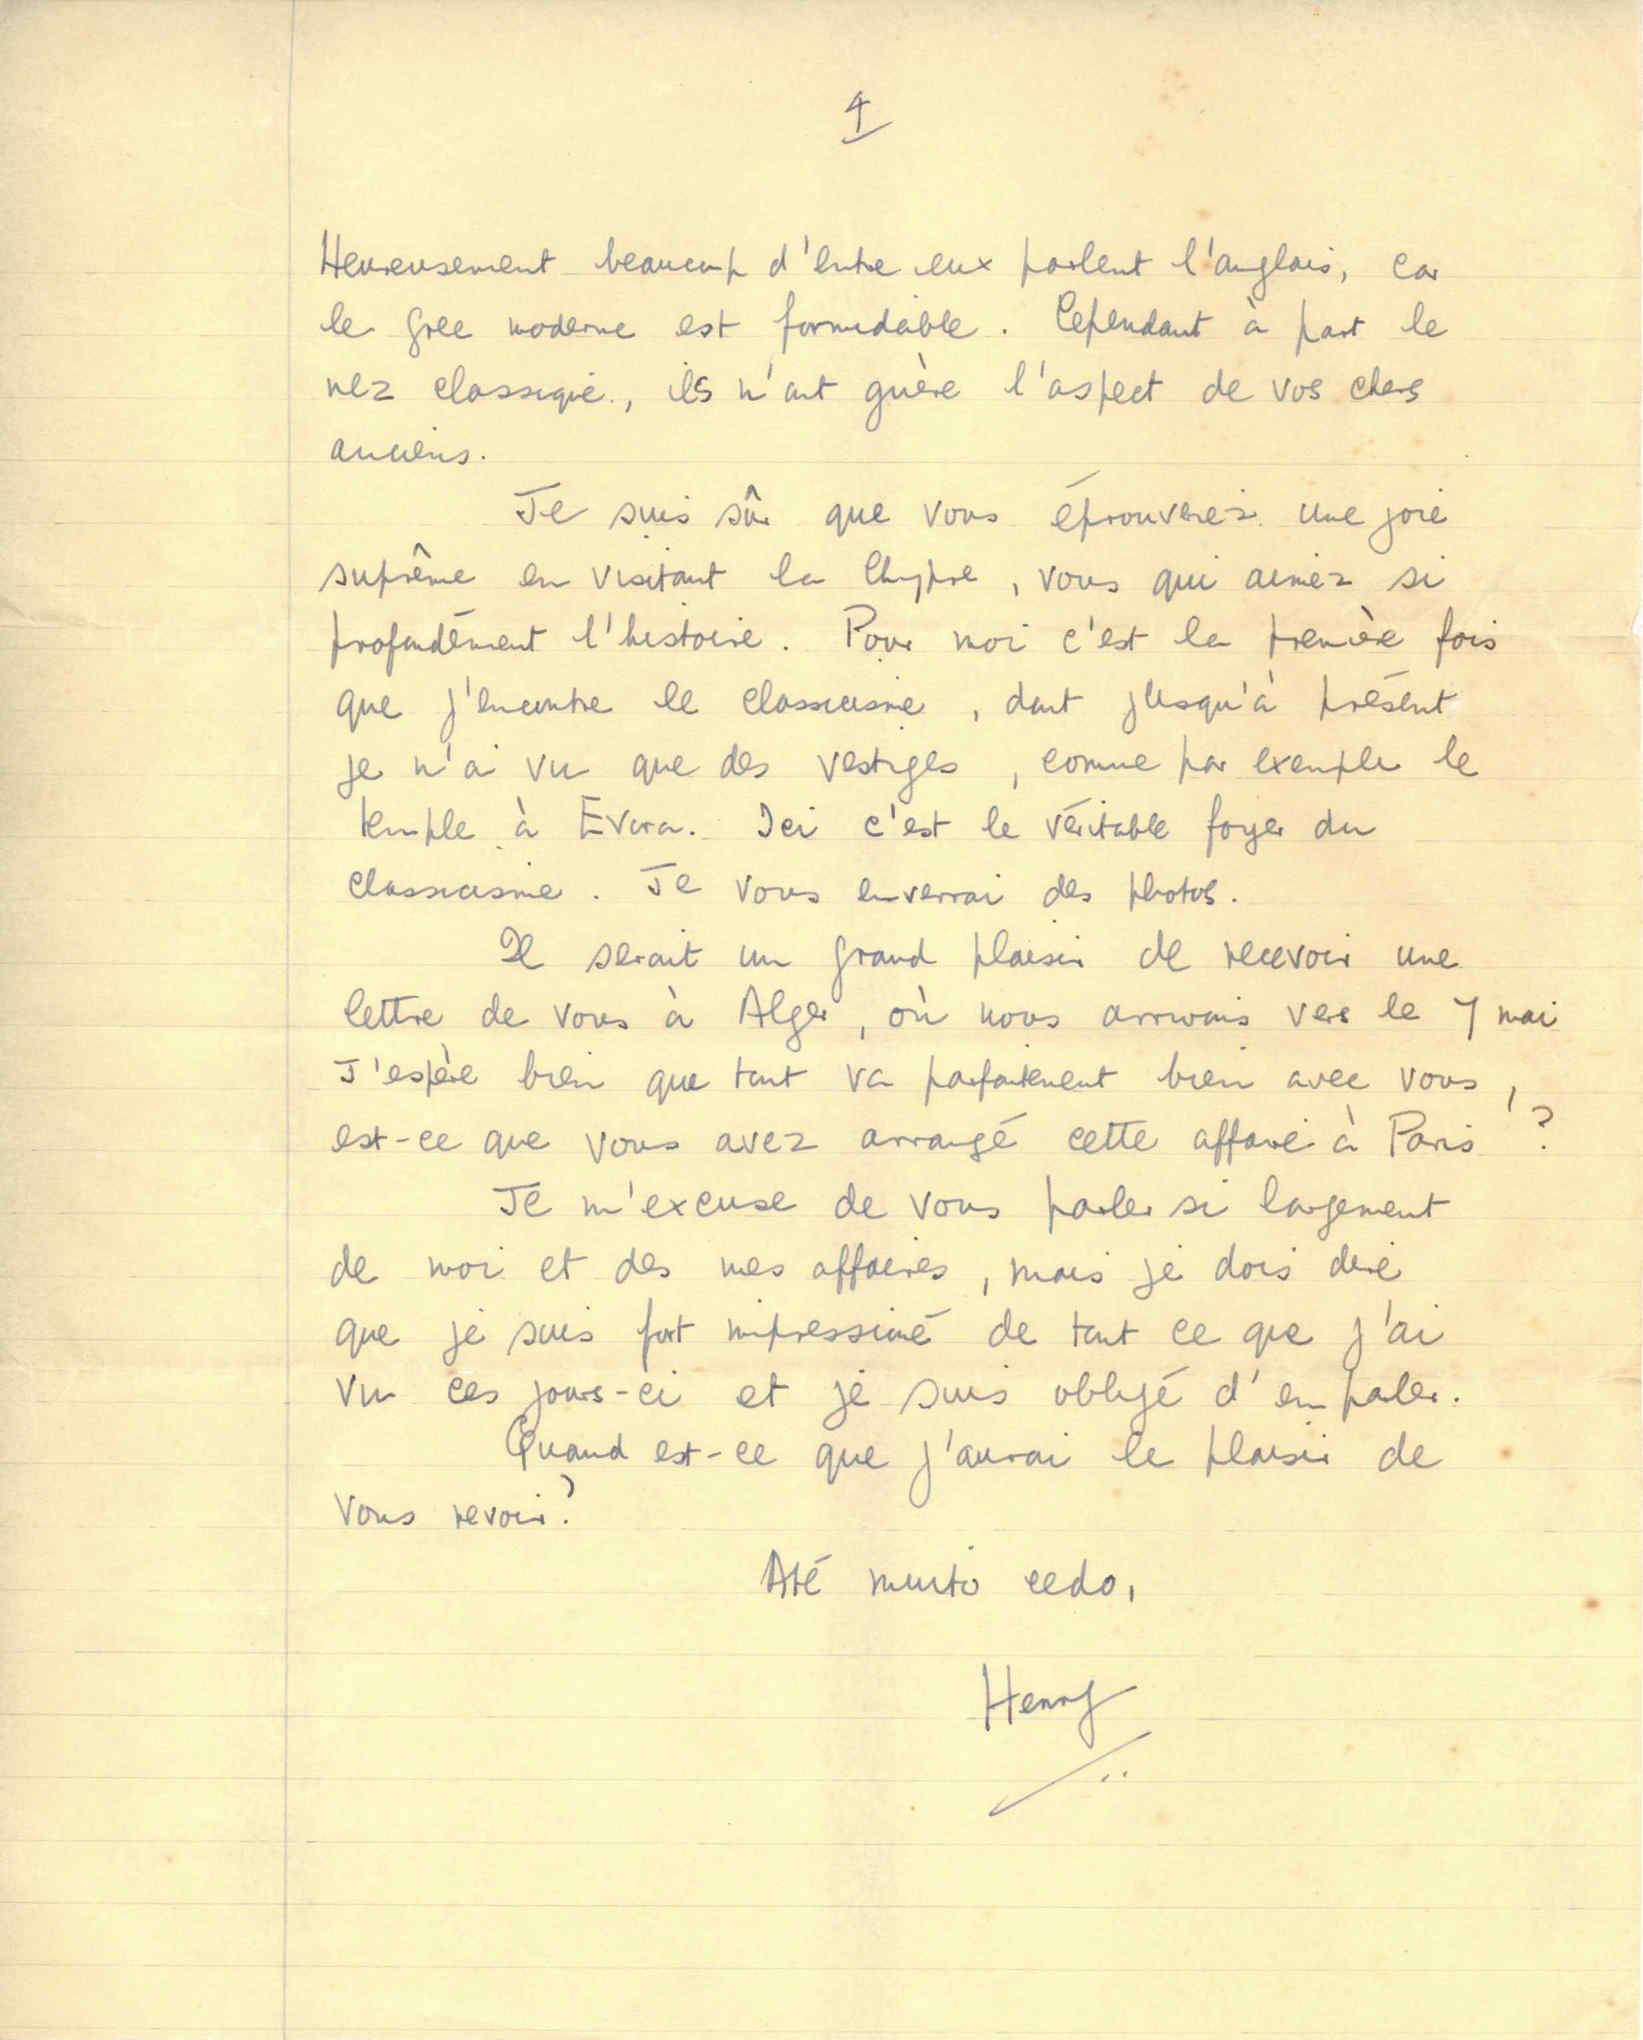 4
Heureusement beaucoup d'entre eux parlent l'anglais, car
le grec moderne est formidable. Cependant à part le
nez classique, ils n'ont guère l'aspect de vos chers
anciens.
Je suis sûr que vous éprouverez une joie
suprême en visitant la Chypre, vous qui aimez si
profondément l'histoire. Pour moi c'est la première fois
que j'encontre le classicisme, dont jusqu'à présent
je n'ai vu que des vestiges, comme par exemple le
temple à Evora. Ici c'est le véritable foyer du
classicisme. Je vous enverrai des photos.
Il serait un grand plaisir de recevoir une
lettre de vous à Alger, où nous arrivons vers le 7 mai
J'espère bien que tout va parfaitement bien avec vous,
est-ce que vous avez arrangé cette affaire à Paris?
Je m'excuse de vous parler si largement
de moi et des mes affaires, mais je dois dire
que je suis fort impressioné de tout ce que j'ai
vu ces jours-ci et je suis obligé d'en parler.
Quand est-ce que j'aurai le plaisir de
vous revoir?
Até muito cedo,
Henry